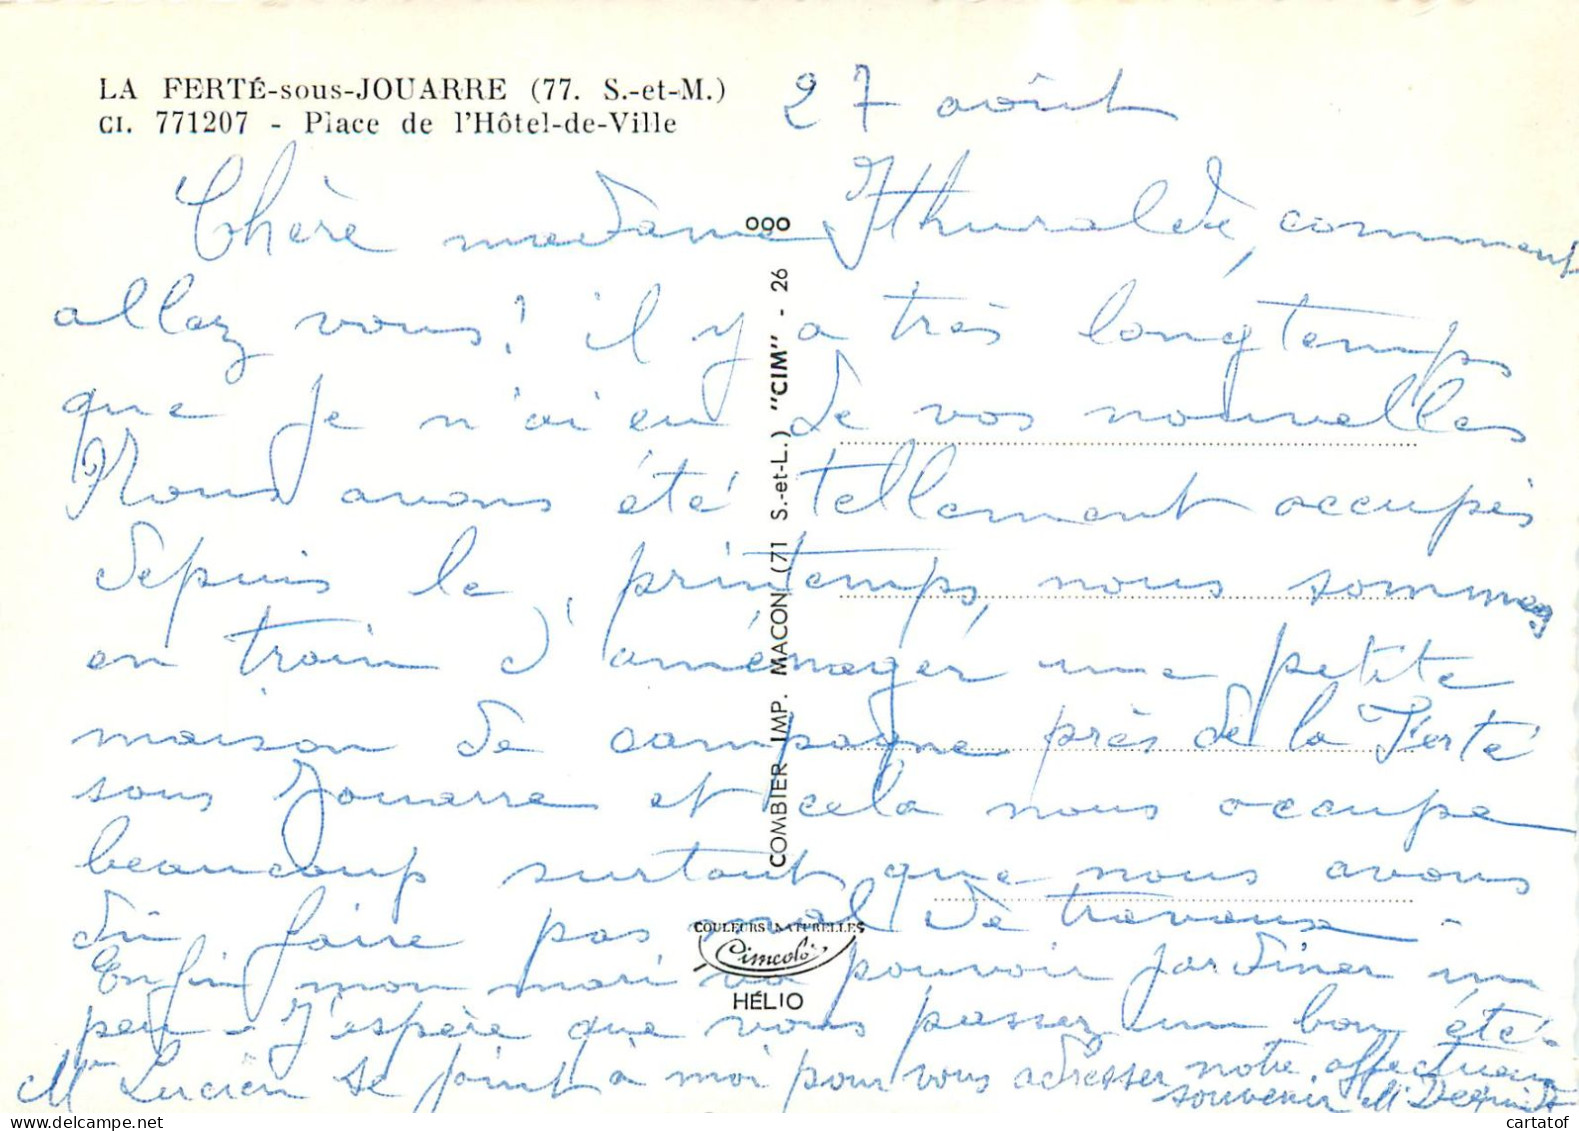 LA FERTÉ-sous-JOUARRE (77. S.-et-M.)
CI. 771207 - Place de l'Hôtel-de-Ville
27 août
Chère madame Ithuralde, comment
allez vous! il y a très longtemps
que je n'ai eu de vos nouvelles
Nous avons été tellement occupés
depuis le printemps, nous sommes
en train d'aménager une petite
maison de campagne près de la Ferté
sous Jouarre et cela nous occupe
beaucoup surtout que nous avons
dû faire pas mal de travaux -
Enfin mon mari va pouvoir jardiner un
peu - J'espère que vous passez un bon été -
Mr Lucien se joint à moi pour vous adresser notre affectueux
souvenir M
COMBIER IMP. MACON (71 S.-et-L.) "CIM" - 26
COULEURS NATURELLES
Cimcolor
HÉLIO
delcampe.net
cartatof